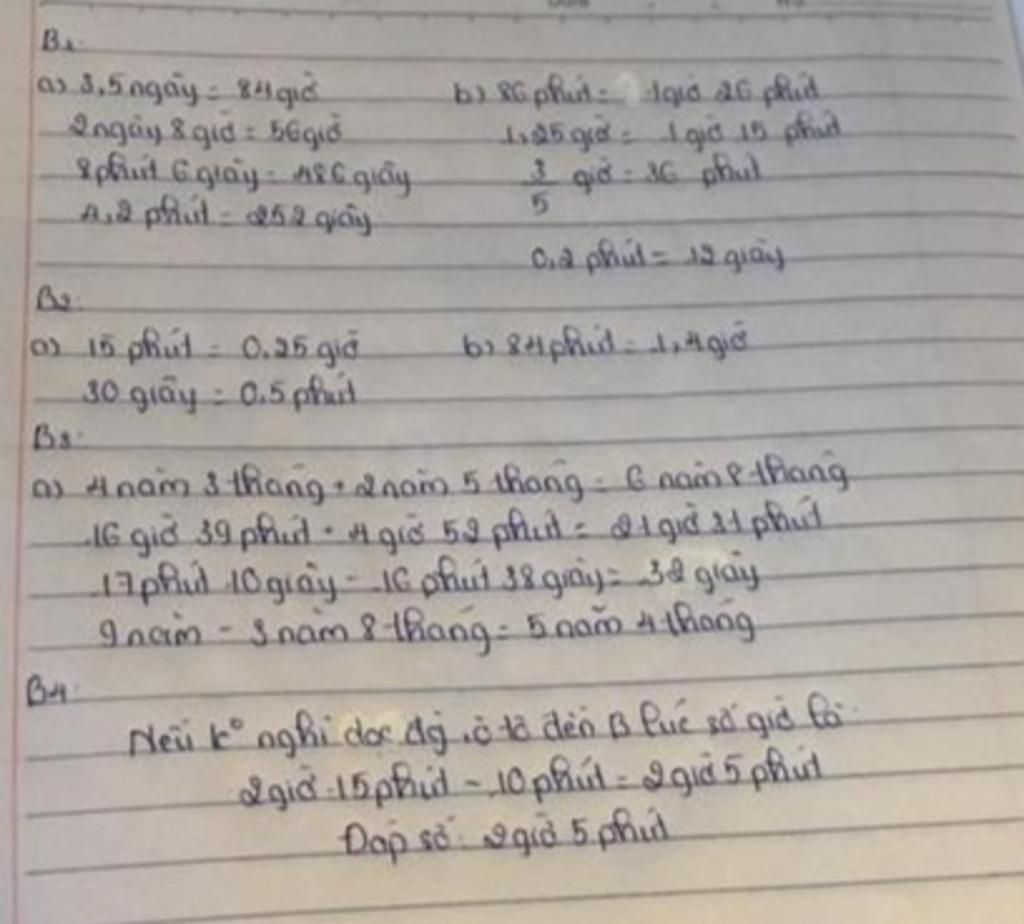 B1:
a) 3,5 ngày = 84 giờ
2 ngày 8 giờ = 56 giờ
8 phút 6 giây = 486 giây
4,2 phút = 252 giây
b) 86 phút = 1 giờ 26 phút
1,25 giờ = 1 giờ 15 phút
3/5 giờ = 36 phút
0,2 phút = 12 giây
B2:
a) 15 phút = 0,25 giờ
30 giây = 0,5 phút
b) 84 phút = 1,4 giờ
B3:
a) 4 năm 3 tháng + 2 năm 5 tháng = 6 năm 8 tháng
16 giờ 39 phút + 4 giờ 52 phút = 21 giờ 31 phút
17 phút 10 giây - 16 phút 38 giây = 32 giây
9 năm - 3 năm 8 tháng = 5 năm 4 tháng
B4:
Nếu k° nghỉ dọc đg, ô tô đến B lúc số giờ là:
2 giờ 15 phút - 10 phút = 2 giờ 5 phút
Đáp số: 2 giờ 5 phút